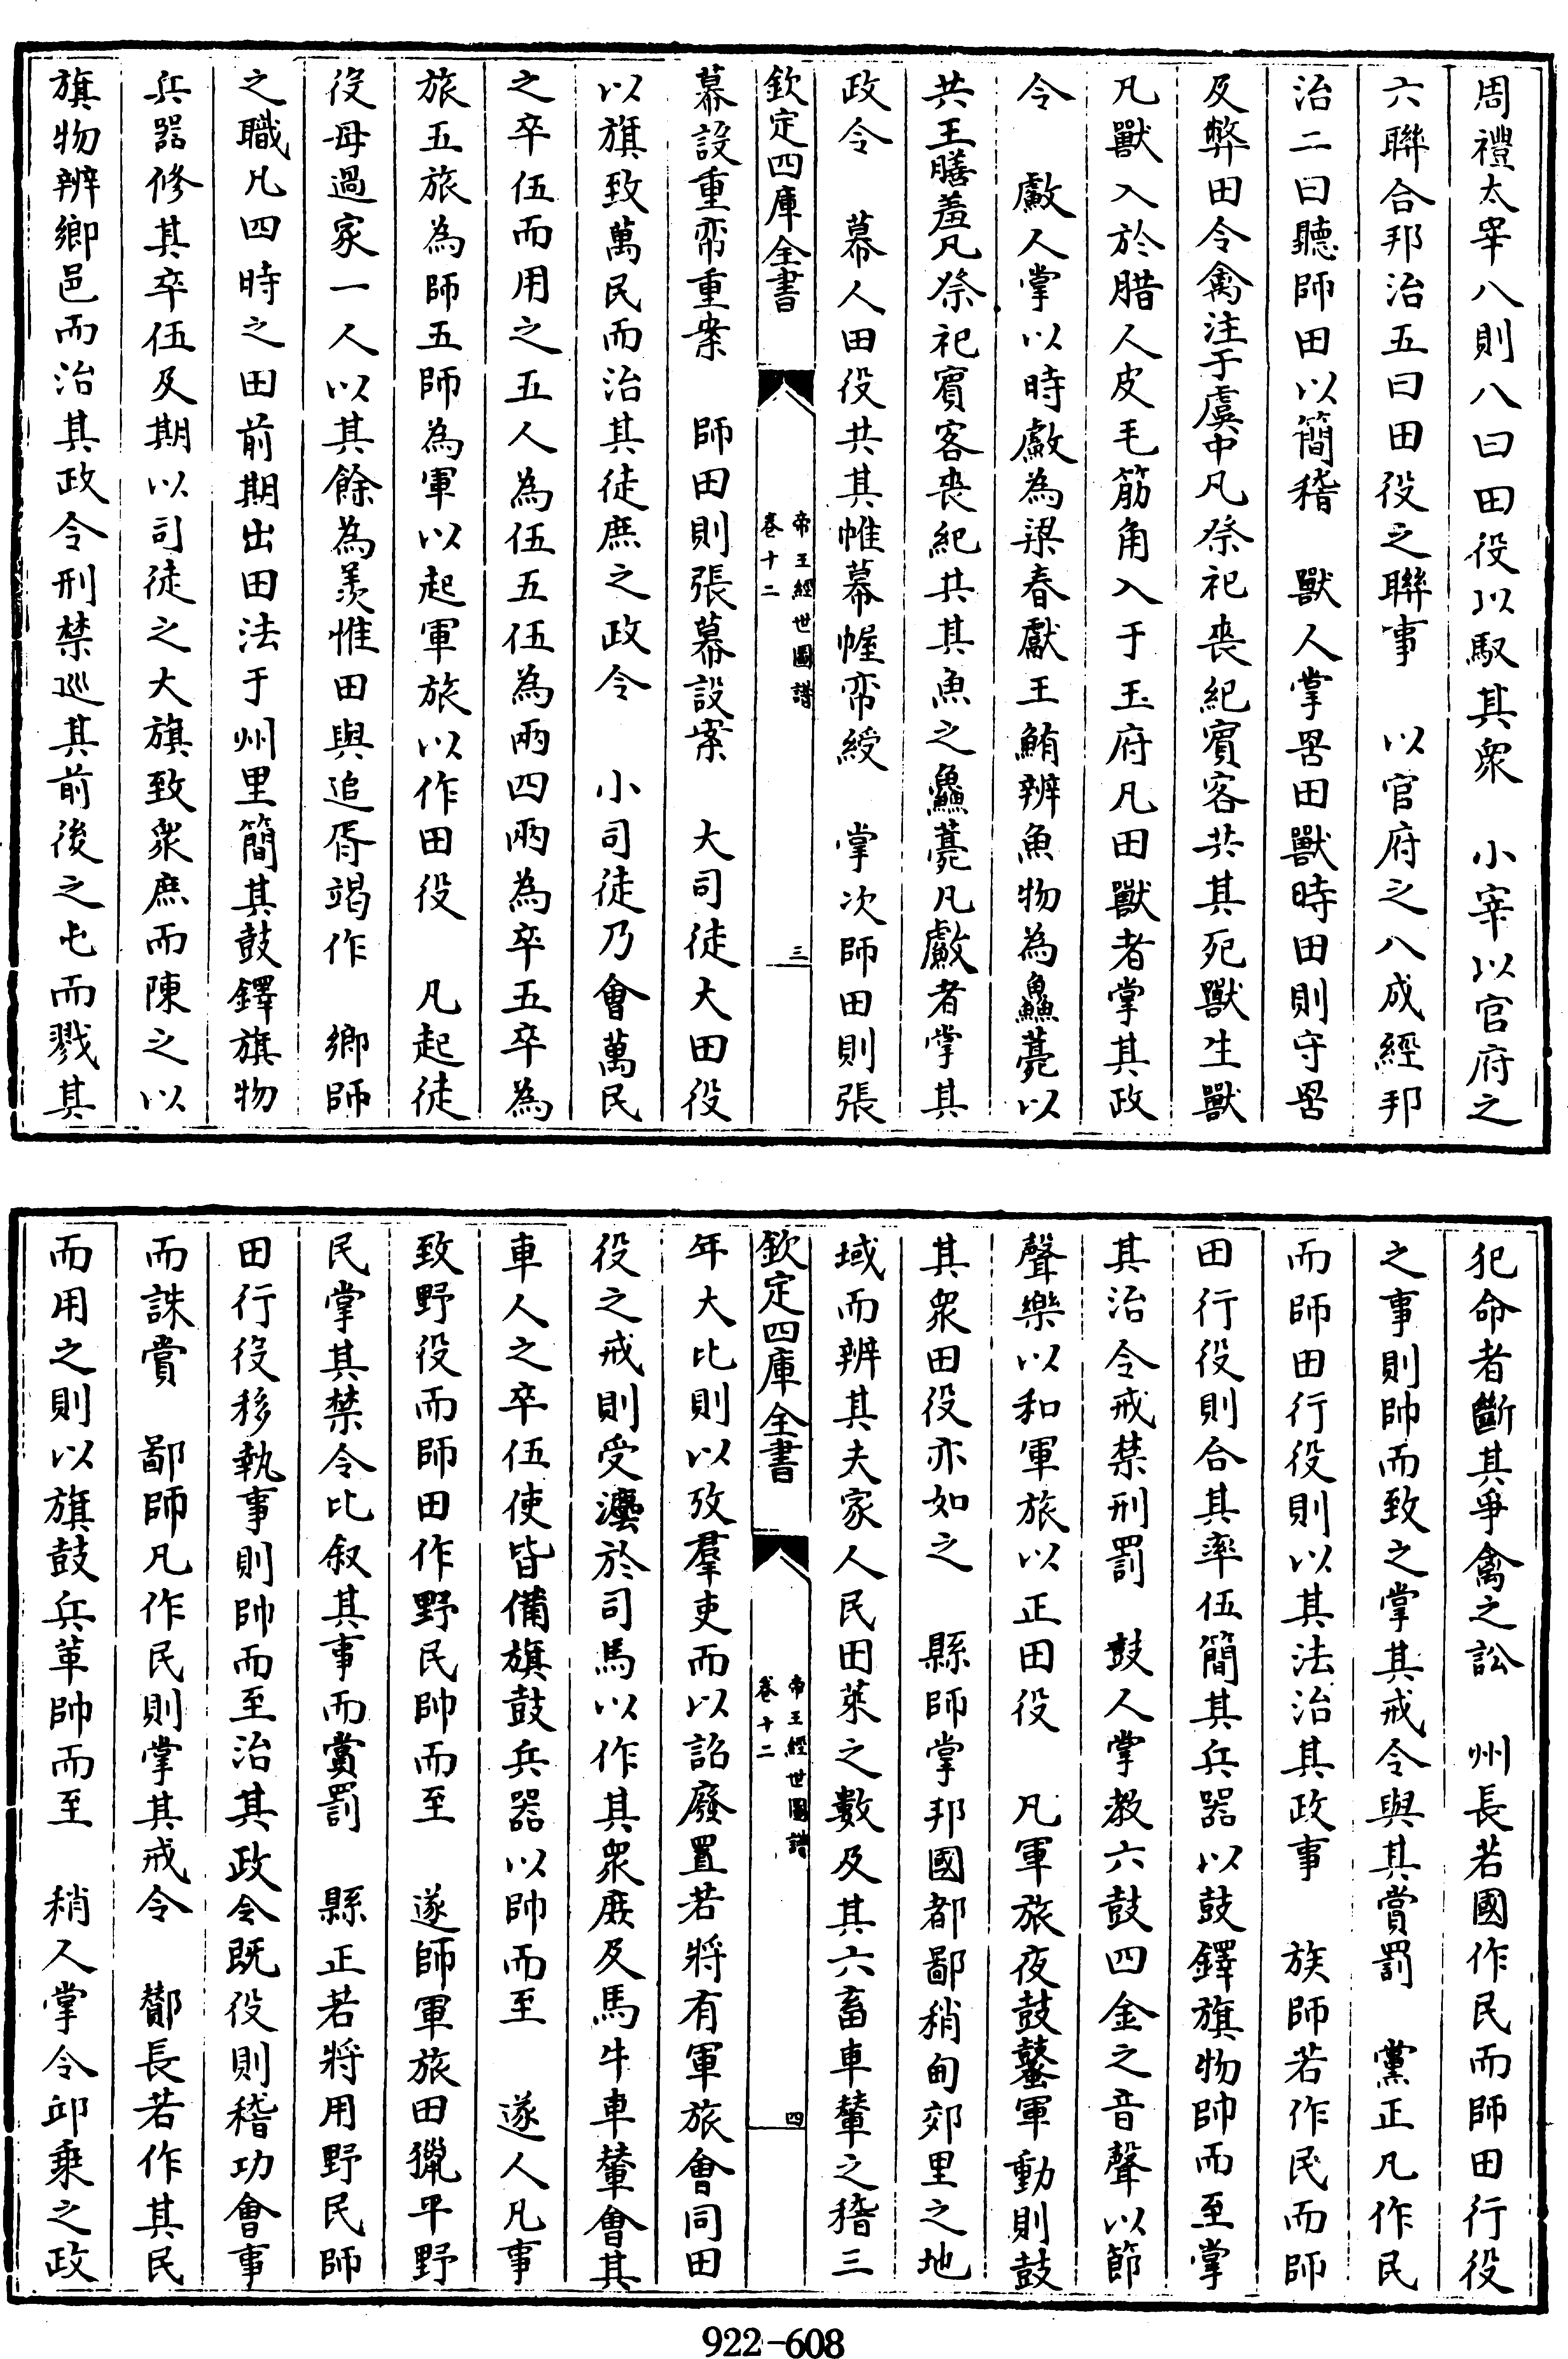 周禮太宰八則八曰田役以馭其衆　小宰以官府之
六聯合邦治五曰田役之聯事　以官府之八成經邦
治二曰聽師田以簡稽　獸人掌罟田獸時田則守罟
及弊田令禽注于虞中凡祭祀喪紀賓客共其死獸生獸
凡獸入於腊人皮毛筋角入于玉府凡田獸者掌其政
令　䱷人掌以時䱷為梁春獻王鮪辨魚物為鱻薧以
共王膳羞凡祭祀賓客喪紀共其魚之鱻薧凡䱷者掌其
政令　幕人田役共其帷幕幄帟綬　掌次師田則張
欽定四庫全書
帝王經世圖譜
卷十二
三
幕設重帟重案　師田則張幕設案　大司徒大田役
以旗致萬民而治其徒庶之政令　小司徒乃會萬民
之卒伍而用之五人為伍五伍為兩四兩為卒五卒為
旅五旅為師五師為軍以起軍旅以作田役　凡起徒
役毋過家一人以其餘為羨惟田與追胥竭作　鄉師
之職凡四時之田前期出田法于州里簡其鼓鐸旗物
兵器修其卒伍及期以司徒之大旗致衆庶而陳之以
旗物辨鄉邑而治其政令刑禁巡其前後之屯而戮其
犯命者斷其爭禽之訟　州長若國作民而師田行役
之事則帥而致之掌其戒令與其賞罰　黨正凡作民
而師田行役則以其法治其政事　族師若作民而師
田行役則合其率伍簡其兵器以鼓鐸旗物帥而至掌
其治令戒禁刑罰　鼓人掌教六鼓四金之音聲以節
聲樂以和軍旅以正田役　凡軍旅夜鼓鼜軍動則鼓
其衆田役亦如之　縣師掌邦國都鄙稍甸郊里之地
域而辨其夫家人民田萊之數及其六畜車輦之稽三
欽定四庫全書
帝王經世圖譜
卷十二
四
年大比則以攷羣吏而以詔廢置若將有軍旅會同田
役之戒則受灋於司馬以作其衆庶及馬牛車輦會其
車人之卒伍使皆備旗鼓兵器以帥而至　遂人凡事
致野役而師田作野民帥而至　遂師軍旅田獵平野
民掌其禁令比叙其事而賞罰　縣正若將用野民師
田行役移執事則帥而至治其政令既役則稽功會事
而誅賞　鄙師凡作民則掌其戒令　酇長若作其民
而用之則以旗鼓兵革帥而至　稍人掌令邱乘之政
922-608